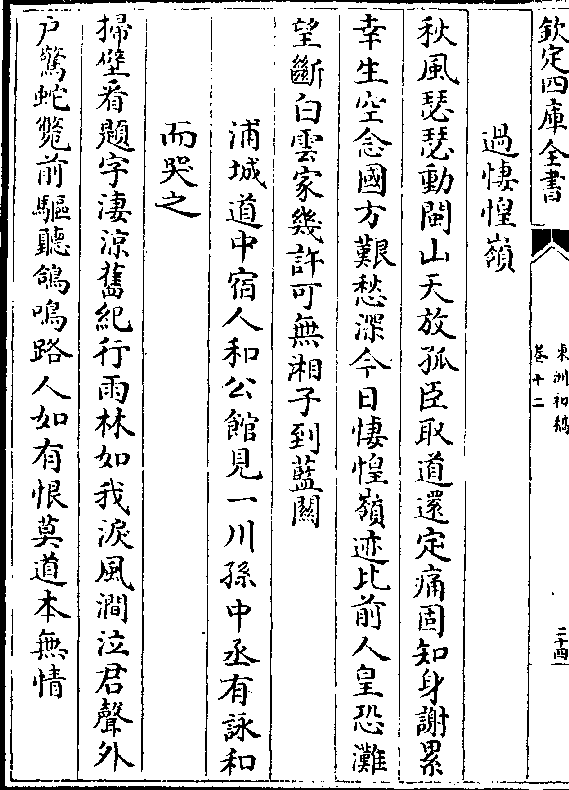 欽定四庫全書
東洲初稿
卷十二
三十四
過悽惶嶺
秋風瑟瑟動閩山天放孤臣取道還定痛固知身謝累
幸生空念國方艱愁深今日悽惶嶺迹比前人皇恐灘
望斷白雲家幾許可無湘子到藍關
浦城道中宿人和公館見一川孫中丞有詠和
而哭之
掃壁看題字淒涼舊紀行雨林如我淚風澗泣君聲外
户驚蛇覽前驅聽鴿鳴路人如有恨莫道本無情